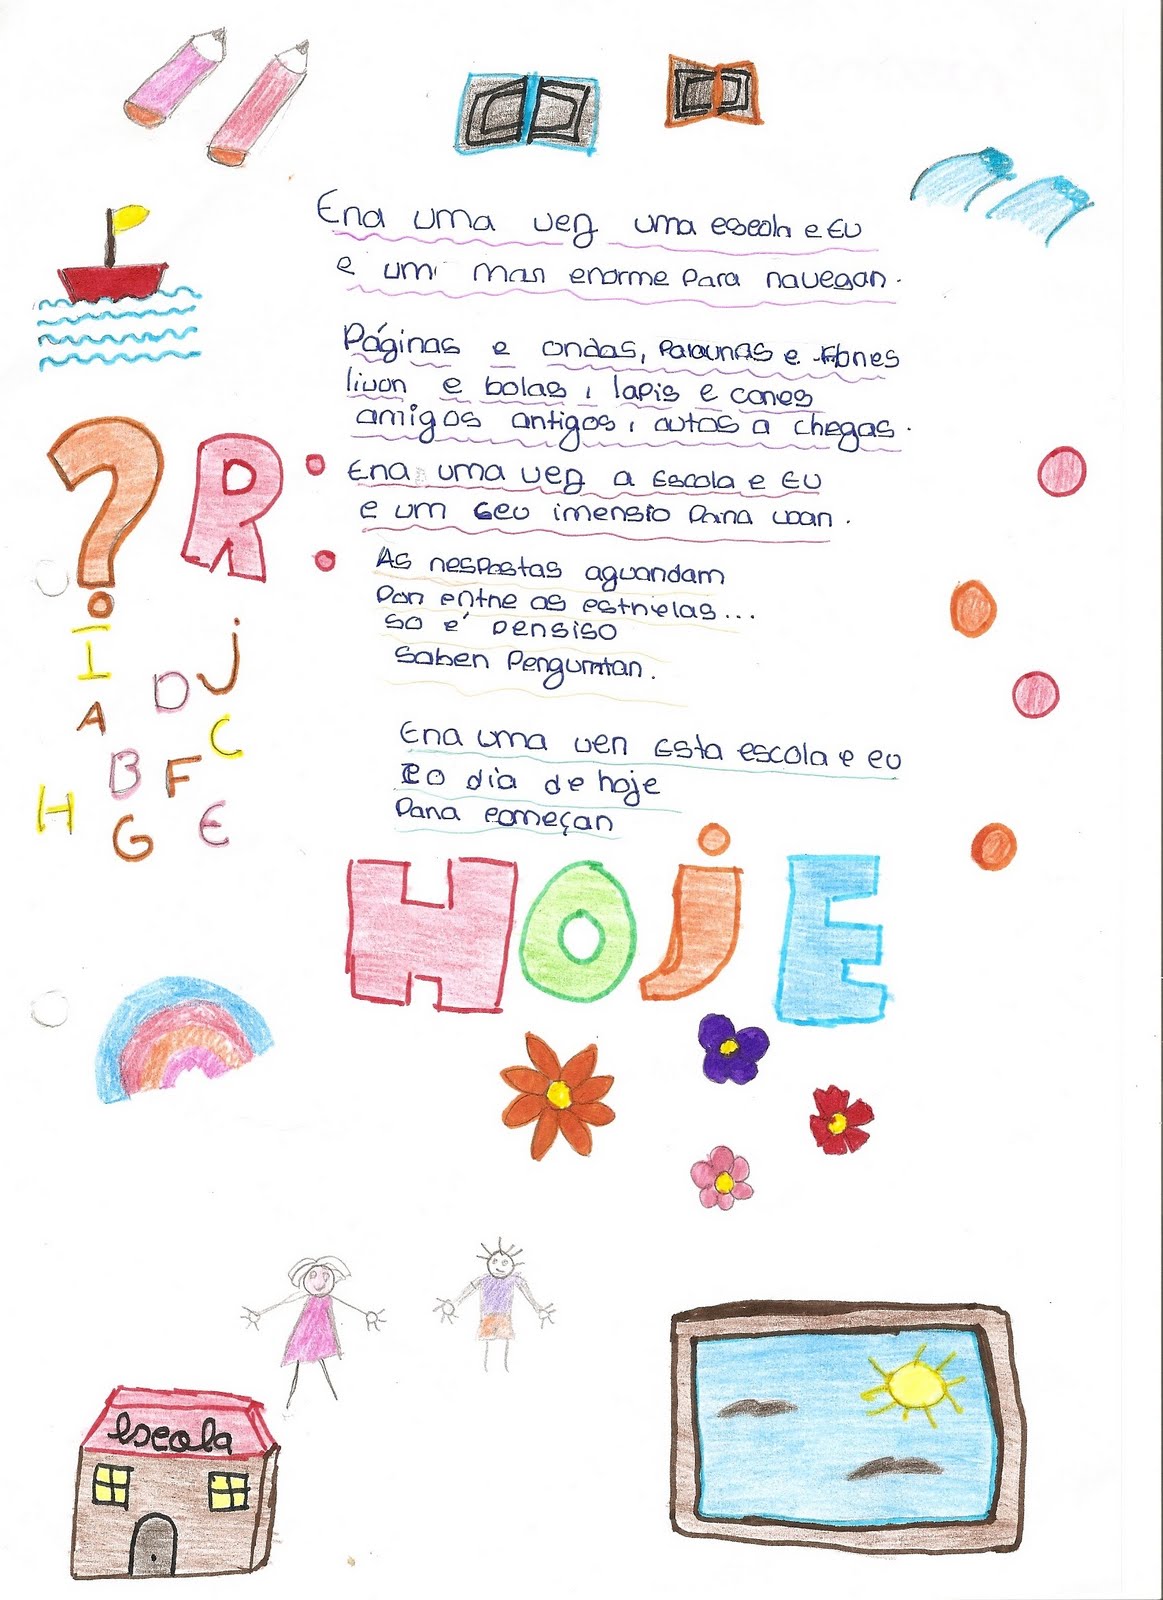 Era uma vez uma escola e Eu
e um mar enorme para navegar.
Páginas e ondas, Palavras e flores
livon e bolas, lapis e cores
amigos antigos, outos a chegas.
Era uma vez a Escola e Eu
e um Ceu imensio Para voar.
As respostas aguardam
Por entre as estrelas...
So é presiso
Saber Perguntar.
Era uma vez Esta escola e eu
E o dia de hoje
Para começar
HOJE
? R :
I J
D
A C
B F
H G E
escola